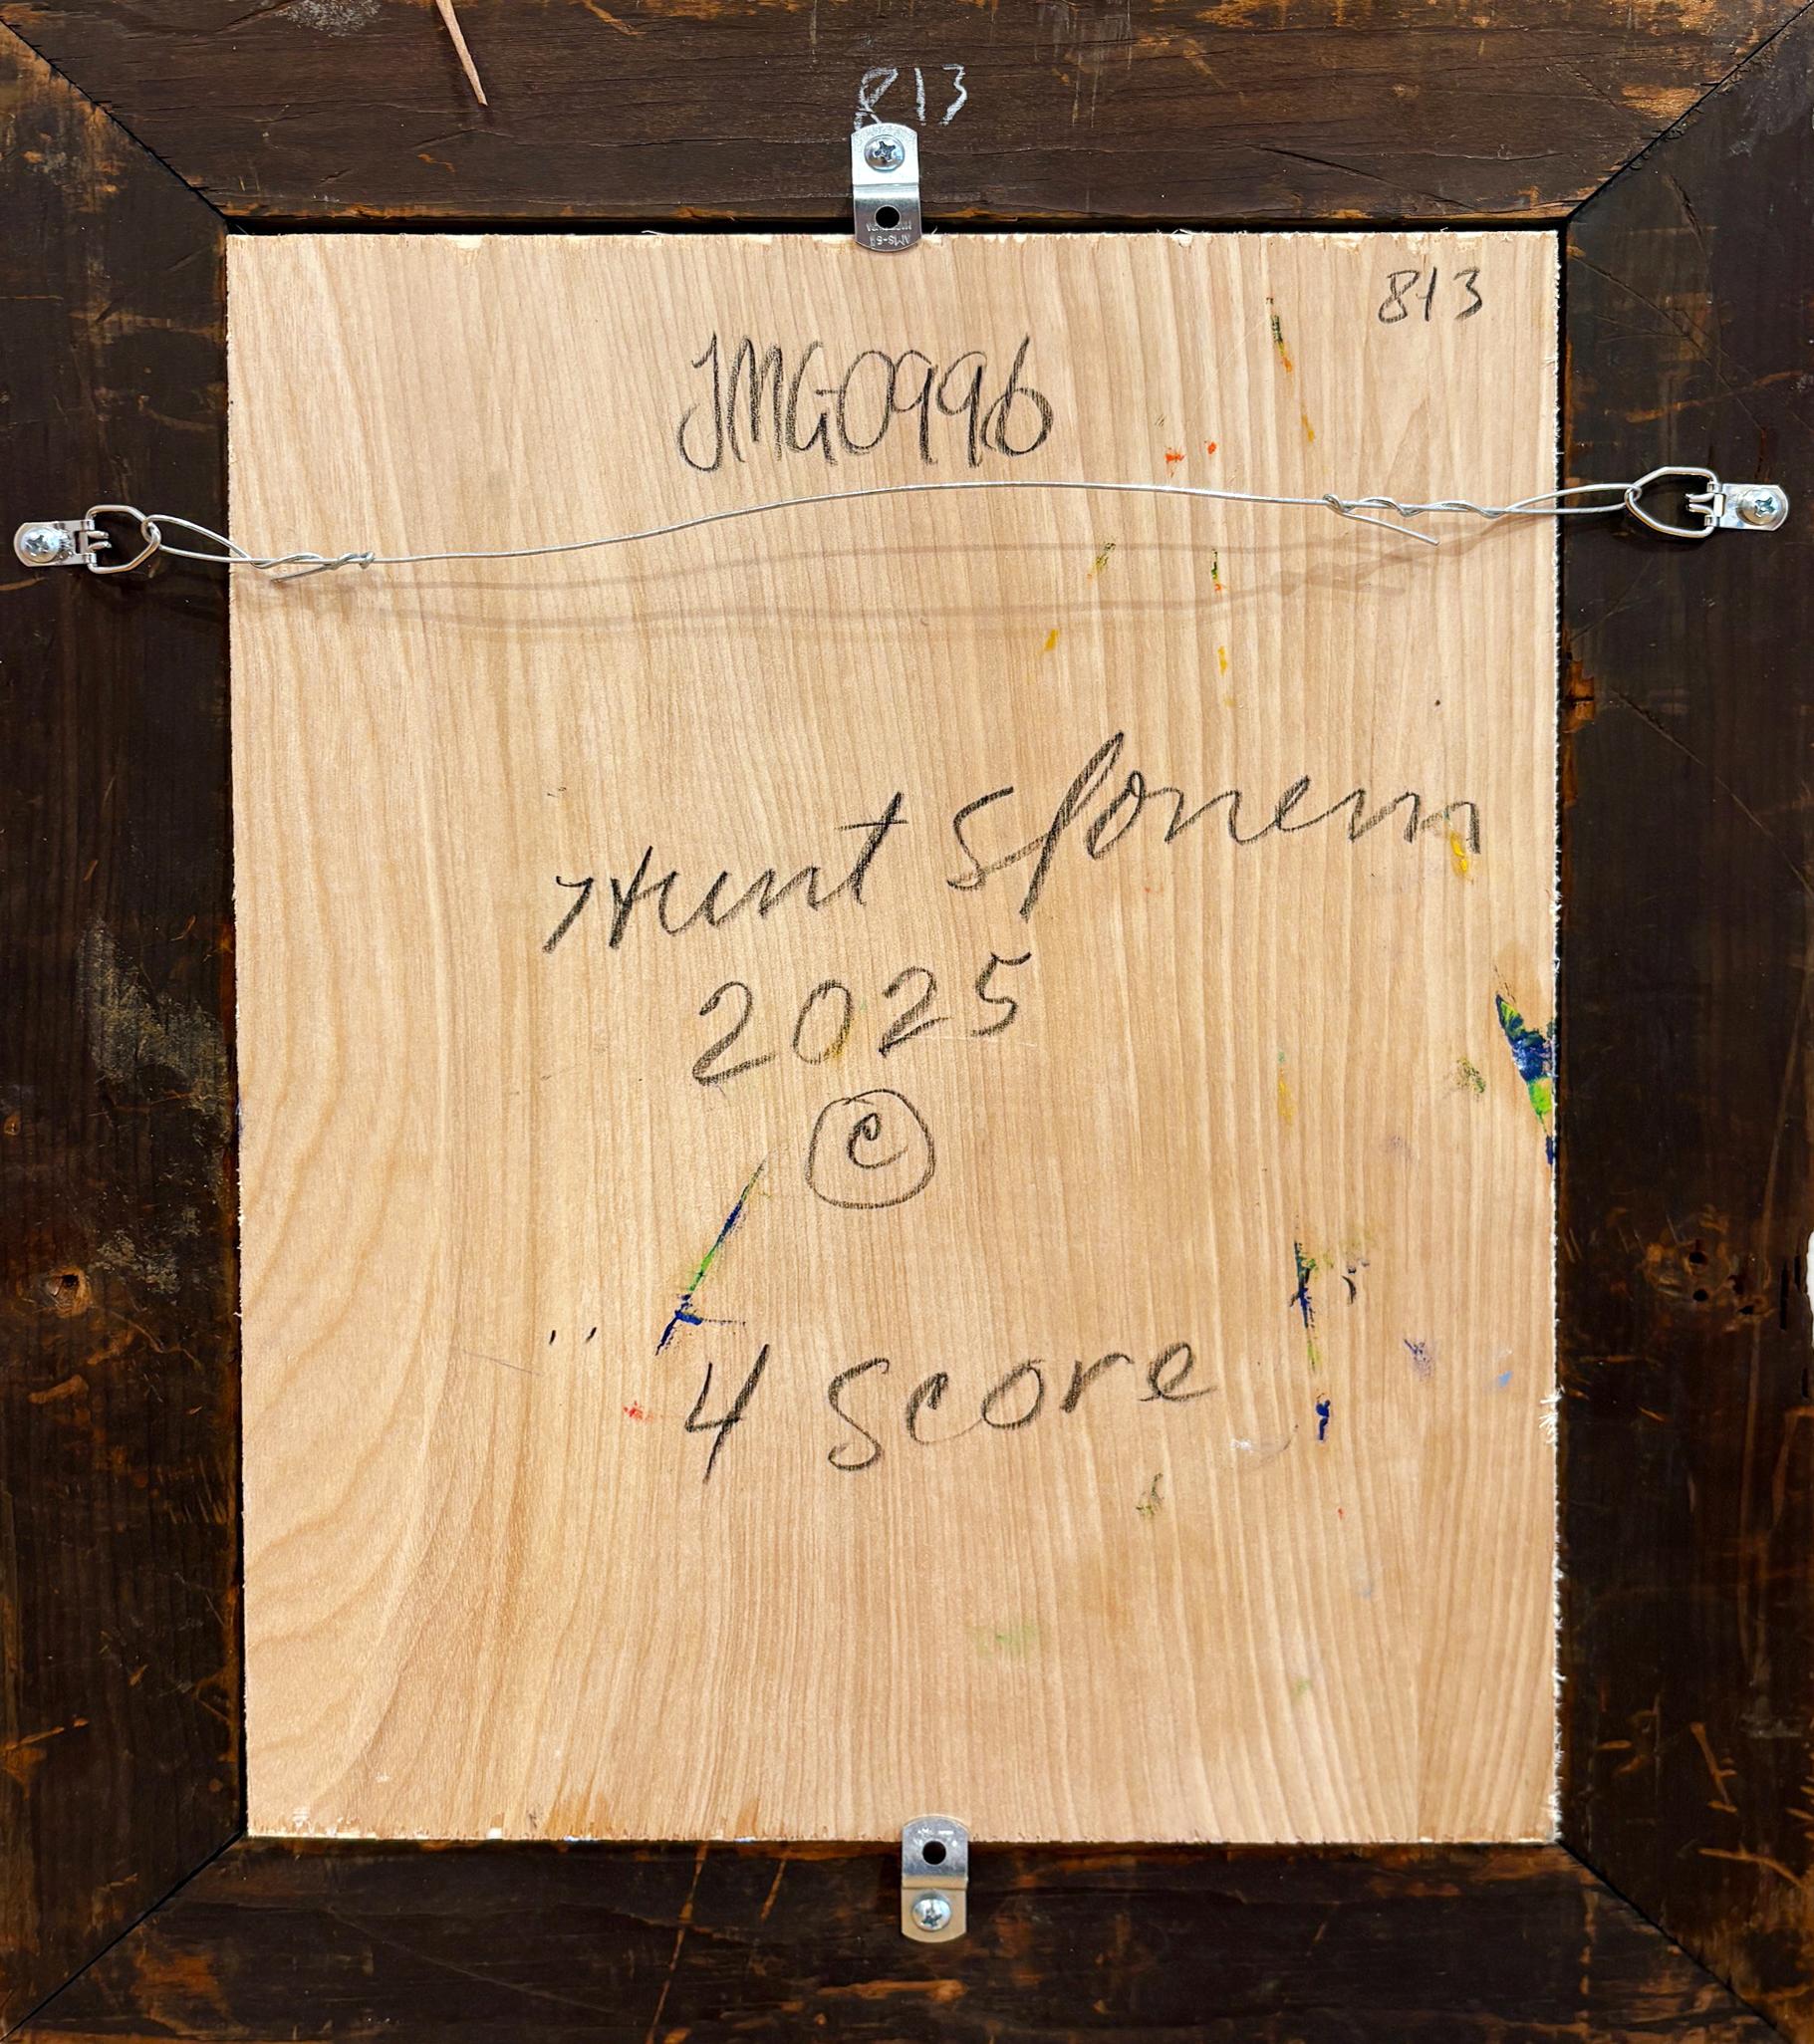 813
813
JMG0996
Hunt Slonem
2025
©
"4 Score"